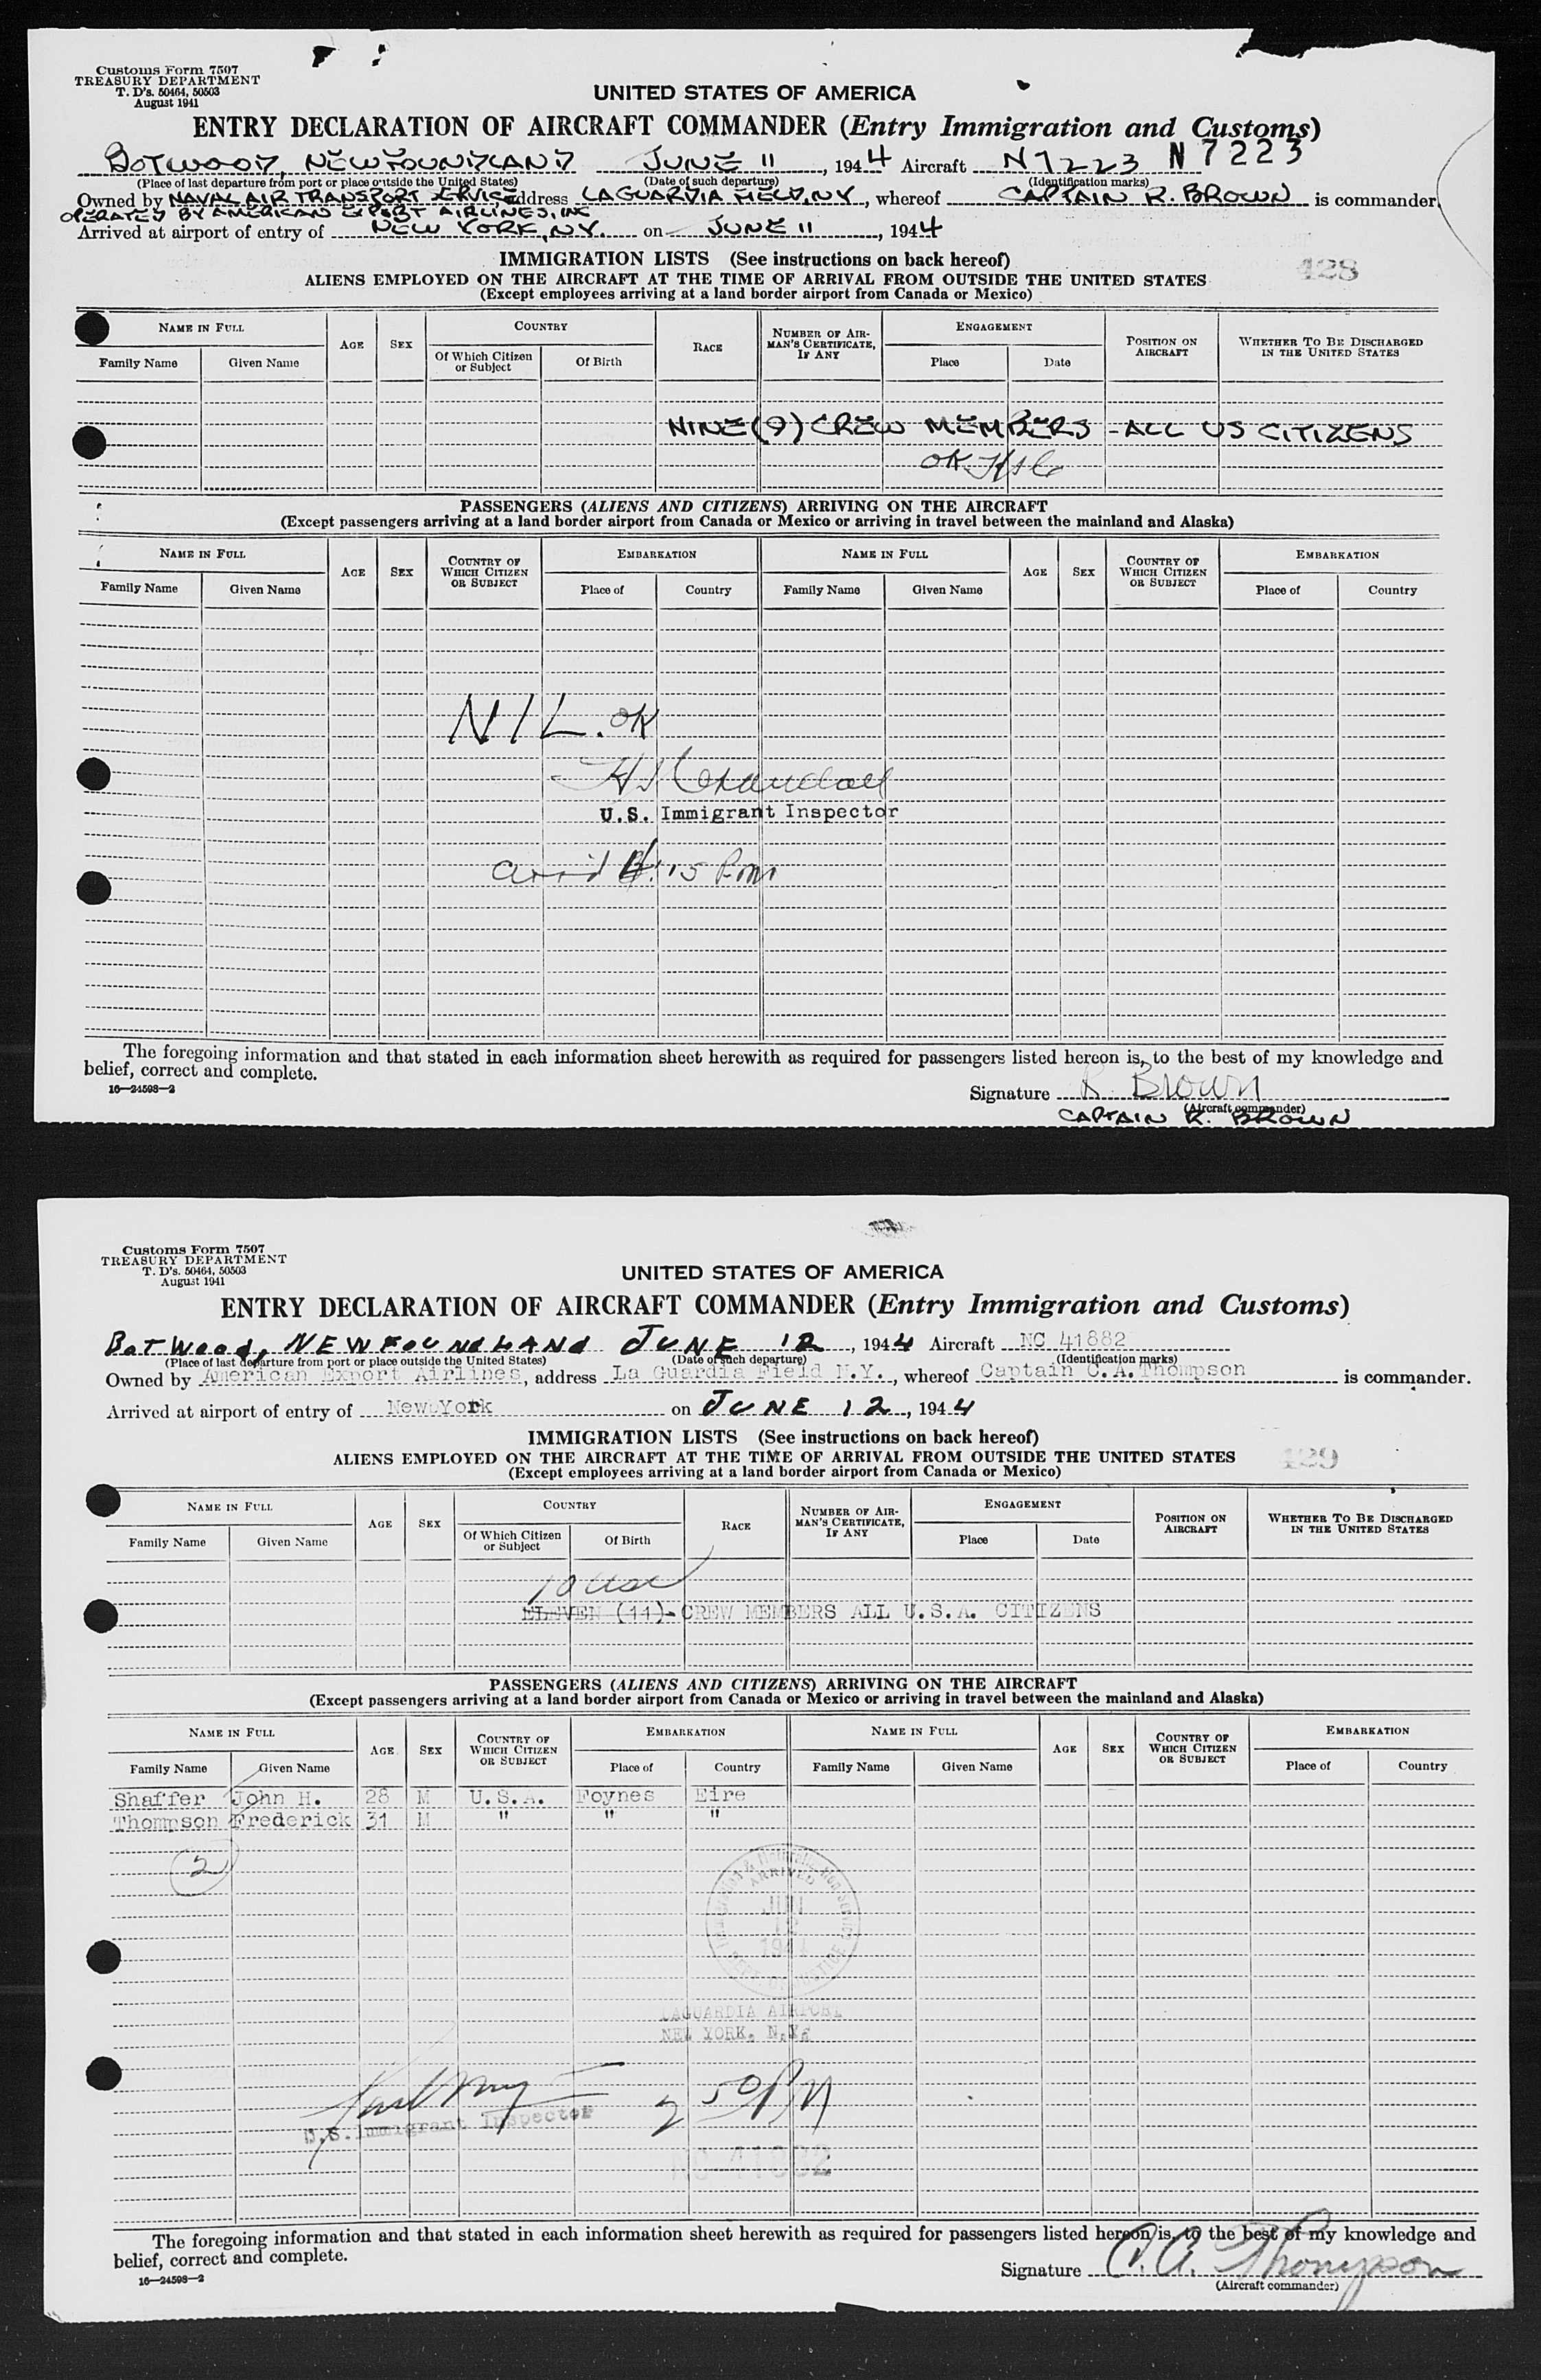 Customs Form 7507
TREASURY DEPARTMENT
T. D's. 50464, 50503
August 1941
UNITED STATES OF AMERICA
ENTRY DECLARATION OF AIRCRAFT COMMANDER (Entry Immigration and Customs)
BOTWOOD, NEWFOUNDLAND JUNE 11, 1944 Aircraft N7223 N7223
(Place of last departure from port or place outside the United States) (Date of such departure) (Identification marks)
Owned by NAVAL AIR TRANSPORT SERVICE address LAGUARDIA FIELD, N.Y., whereof CAPTAIN R. BROWN is commander.
OPERATED BY AMERICAN EXPORT AIRLINES, INC
Arrived at airport of entry of NEW YORK, N.Y. on JUNE 11, 1944
IMMIGRATION LISTS (See instructions on back hereof)
428
ALIENS EMPLOYED ON THE AIRCRAFT AT THE TIME OF ARRIVAL FROM OUTSIDE THE UNITED STATES
(Except employees arriving at a land border airport from Canada or Mexico)
NAME IN FULL AGE SEX COUNTRY RACE NUMBER OF AIRMAN'S CERTIFICATE, IF ANY ENGAGEMENT POSITION ON AIRCRAFT WHETHER TO BE DISCHARGED IN THE UNITED STATES
Family Name Given Name Of Which Citizen or Subject Of Birth Place Date
NINE (9) CREW MEMBERS - ALL US CITIZENS
OK
PASSENGERS (ALIENS AND CITIZENS) ARRIVING ON THE AIRCRAFT
(Except passengers arriving at a land border airport from Canada or Mexico or arriving in travel between the mainland and Alaska)
NAME IN FULL AGE SEX COUNTRY OF WHICH CITIZEN OR SUBJECT EMBARKATION NAME IN FULL AGE SEX COUNTRY OF WHICH CITIZEN OR SUBJECT EMBARKATION
Family Name Given Name Place of Country Family Name Given Name Place of Country
NIL. OK
U.S. Immigrant Inspector
15 Pm
The foregoing information and that stated in each information sheet herewith as required for passengers listed hereon is, to the best of my knowledge and
belief, correct and complete.
16—24598—2
Signature R. Brown
(Aircraft commander)
CAPTAIN R. BROWN
Customs Form 7507
TREASURY DEPARTMENT
T. D's. 50464, 50503
August 1941
UNITED STATES OF AMERICA
ENTRY DECLARATION OF AIRCRAFT COMMANDER (Entry Immigration and Customs)
BOTWOOD, NEWFOUNDLAND JUNE 12, 1944 Aircraft NC 41882
(Place of last departure from port or place outside the United States) (Date of such departure) (Identification marks)
Owned by American Export Airlines, address La Guardia Field N.Y., whereof Captain C.A.Thompson is commander.
Arrived at airport of entry of New York on JUNE 12, 1944
IMMIGRATION LISTS (See instructions on back hereof)
429
ALIENS EMPLOYED ON THE AIRCRAFT AT THE TIME OF ARRIVAL FROM OUTSIDE THE UNITED STATES
(Except employees arriving at a land border airport from Canada or Mexico)
NAME IN FULL AGE SEX COUNTRY RACE NUMBER OF AIRMAN'S CERTIFICATE, IF ANY ENGAGEMENT POSITION ON AIRCRAFT WHETHER TO BE DISCHARGED IN THE UNITED STATES
Family Name Given Name Of Which Citizen or Subject Of Birth Place Date
10 USC
ELEVEN (11)-CREW MEMBERS ALL U.S.A. CITIZENS
PASSENGERS (ALIENS AND CITIZENS) ARRIVING ON THE AIRCRAFT
(Except passengers arriving at a land border airport from Canada or Mexico or arriving in travel between the mainland and Alaska)
NAME IN FULL AGE SEX COUNTRY OF WHICH CITIZEN OR SUBJECT EMBARKATION NAME IN FULL AGE SEX COUNTRY OF WHICH CITIZEN OR SUBJECT EMBARKATION
Family Name Given Name Place of Country Family Name Given Name Place of Country
Shaffer John H. 28 M U.S.A. Foynes Eire
Thompson Frederick 31 M " " "
2
ARRIVED
JUN
12
1944
LAGUARDIA AIRPORT
NEW YORK, N.Y.
2 50 PM
U.S.Immigrant Inspector
NC 41882
The foregoing information and that stated in each information sheet herewith as required for passengers listed hereon is, to the best of my knowledge and
belief, correct and complete.
16—24598—2
Signature C. A. Thompson
(Aircraft commander)